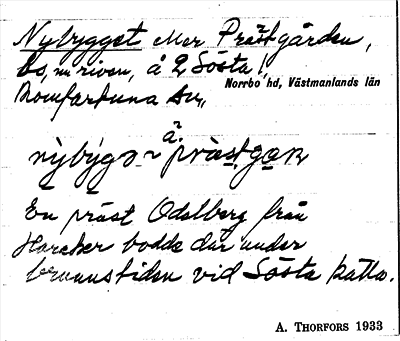 Nybygget eller Prästgården,
bs, nu riven, å 2 Sösta,
Norrbo hd, Västmanlands län
Romfartuna sn,
En präst Odelberg från
Haraker bodde där under
brunnstiden vid Sösta källa.
A. THORFORS 1933